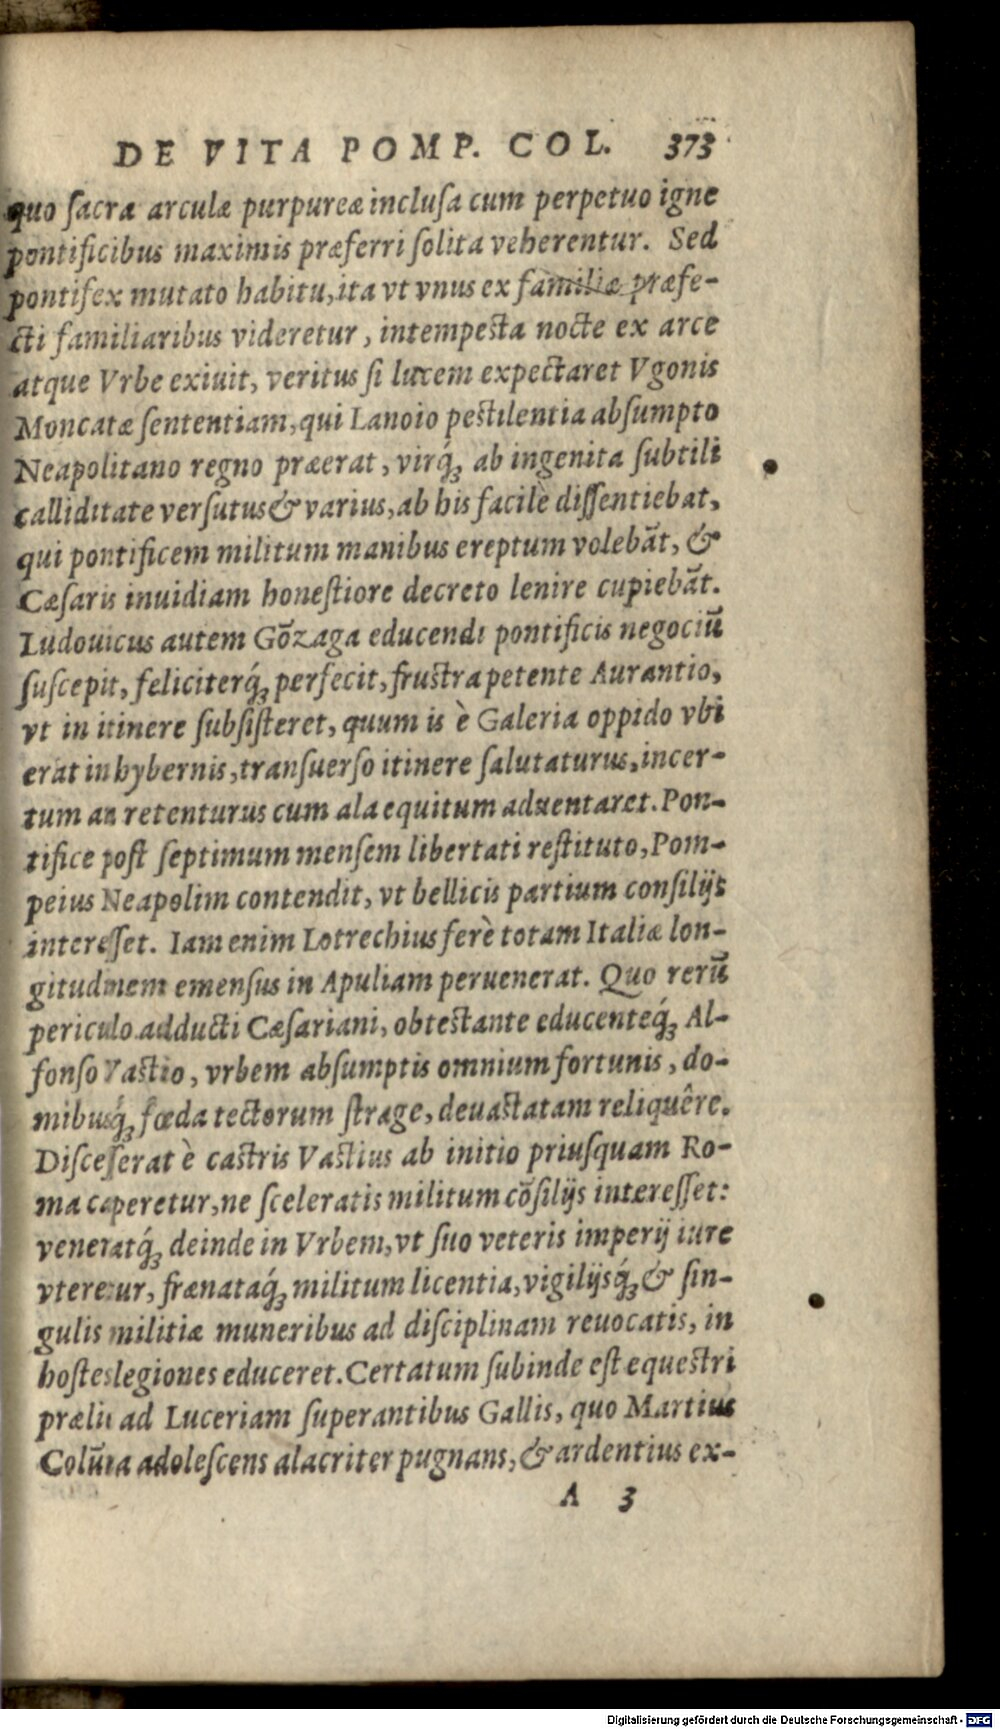 DE VITA POMP. COL. 373
quo ſacra arculæ purpureæ incluſa cum perpetuo igne
pontificibus maximis præferri ſolita veherentur. Sed
pontifex mutato habitu, ita vt vnus ex familiæ præfe-
cti familiaribus videretur, intempeſta nocte ex arce
atque Vrbe exiuit, veritus ſi lucem expectaret Vgonis
Moncatæ ſententiam, qui Lanoio peſtilentia abſumpto
Neapolitano regno præerat, virq́ꝫ ab ingenita ſubtili
calliditate verſutus & varius, ab his facilè diſſentiebat,
qui pontificem militum manibus ereptum volebãt, &
Cæſaris inuidiam honeſtiore decreto lenire cupiebãt.
Ludouicus autem Gõzaga educendi pontificis negociũ
ſuſcepit, feliciterq́ꝫ perfecit, fruſtra petente Aurantio,
vt in itinere ſubſiſteret, quum is è Galeria oppido vbi
erat in hybernis, tranſuerſo itinere ſalutaturus, incer-
tum an retenturus cum ala equitum aduentaret. Pon-
tifice poſt ſeptimum menſem libertati reſtituto, Pom-
peius Neapolim contendit, vt bellicis partium conſilijs
intereſſet. Iam enim Lotrechius ferè totam Italiæ lon-
gitudinem emenſus in Apuliam peruenerat. Quo rerũ
periculo adducti Cæſariani, obteſtante educenteq́ꝫ Al-
fonſo Vaſtio, vrbem abſumptis omnium fortunis, do-
mibuſq́ꝫ fœda tectorum ſtrage, deuaſtatam reliquêre.
Diſceſſerat è caſtris Vaſtius ab initio priuſquam Ro-
ma caperetur, ne ſceleratis militum cõſilijs intereſſet:
veneratq́ꝫ deinde in Vrbem, vt ſuo veteris imperij iure
vteretur, frænataq́ꝫ militum licentia, vigilijſq́ꝫ & ſin-
gulis militiæ muneribus ad diſciplinam reuocatis, in
hoſtes legiones educeret. Certatum ſubinde eſt equeſtri
prælii ad Luceriam ſuperantibus Gallis, quo Martius
Colũna adoleſcens alacriter pugnans, & ardentius ex-
A 3
Digitalisierung gefördert durch die Deutsche Forschungsgemeinschaft - DFG